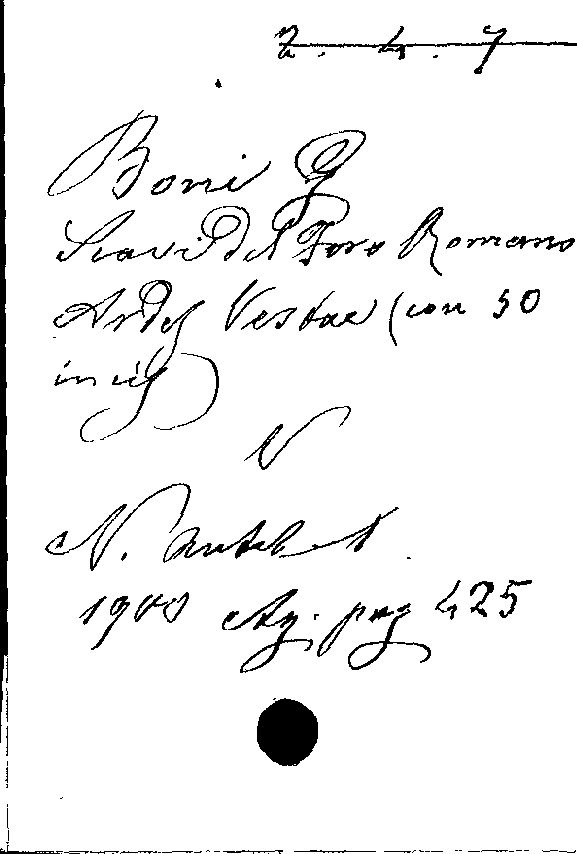 2. 4. 7
Boni G
Scavi del Foro Romano
Aedes Vestae (con 50
incis)
V
N. Antch.
1900 Ag. pag 425